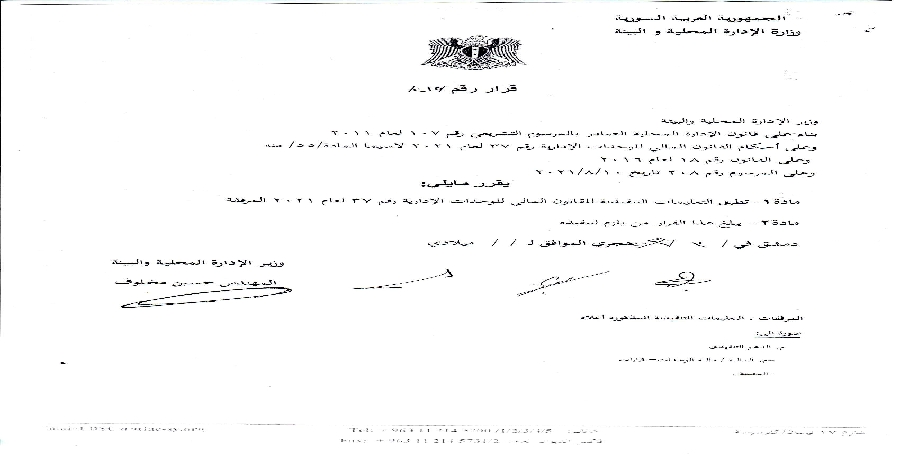 الجمهورية العربية السورية
وزارة الإدارة المحلية و البيئة
قرار رقم
وزير الإدارة المحلية والبيئة
بناء على قانون الإدارة المحلية الصادر بالمرسوم التشريعي رقم ١٠٧ لعام ٢٠١١
وعلى أحكام القانون المالي للوحدات الإدارية رقم ٣٧ لعام ٢٠٢١ لاسيما المادة/٥٥/ منه
وعلى القانون رقم ١٨ لعام ٢٠١٦
وعلى المرسوم رقم ٢٠٨ تاريخ ٢٠٢١/٨/١٠
يقرر مايلي:
مادة ١- تطبق التعليمات التنفيذية للقانون المالي للوحدات الإدارية رقم ٣٧ لعام ٢٠٢١ المرفقة
مادة ٢- يبلغ هذا القرار من يلزم لتنفيذه
دمشق في / / هجري الموافق لـ / / ميلادي
وزير الإدارة المحلية والبيئة
المهندس حسين مخلوف
المرفقات : التعليمات التنفيذية المذكورة أعلاه
صورة إلى: